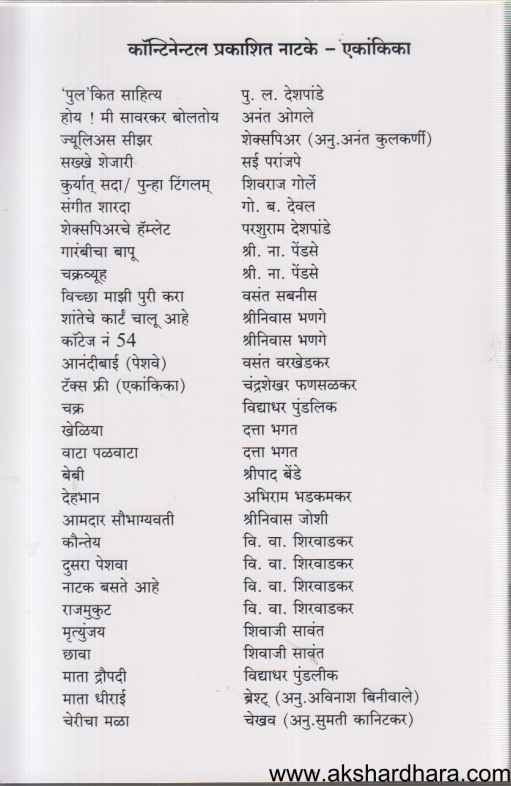 कॉन्टिनेन्टल प्रकाशित नाटके – एकांकिका
'पुल'कित साहित्य पु. ल. देशपांडे
होय ! मी सावरकर बोलतोय अनंत ओगले
ज्यूलिअस सीझर शेक्सपिअर (अनु.अनंत कुलकर्णी)
सख्खे शेजारी सई परांजपे
कुर्यात् सदा/ पुन्हा टिंगलम् शिवराज गोर्ले
संगीत शारदा गो. ब. देवल
शेक्सपिअरचे हॅम्लेट परशुराम देशपांडे
गारंबीचा बापू श्री. ना. पेंडसे
चक्रव्यूह श्री. ना. पेंडसे
विच्छा माझी पुरी करा वसंत सबनीस
शांतेचे कार्टं चालू आहे श्रीनिवास भणगे
कॉटेज नं 54 श्रीनिवास भणगे
आनंदीबाई (पेशवे) वसंत वरखेडकर
टॅक्स फ्री (एकांकिका) चंद्रशेखर फणसळकर
चक्र विद्याधर पुंडलिक
खेळिया दत्ता भगत
वाटा पळवाटा दत्ता भगत
बेबी श्रीपाद बेंडे
देहभान अभिराम भडकमकर
आमदार सौभाग्यवती श्रीनिवास जोशी
कौन्तेय वि. वा. शिरवाडकर
दुसरा पेशवा वि. वा. शिरवाडकर
नाटक बसते आहे वि. वा. शिरवाडकर
राजमुकुट वि. वा. शिरवाडकर
मृत्युंजय शिवाजी सावंत
छावा शिवाजी सावंत
माता द्रौपदी विद्याधर पुंडलीक
माता धीराई ब्रेश्ट् (अनु.अविनाश बिनीवाले)
चेरीचा मळा चेखव (अनु.सुमती कानिटकर)
www.akshardhara.com